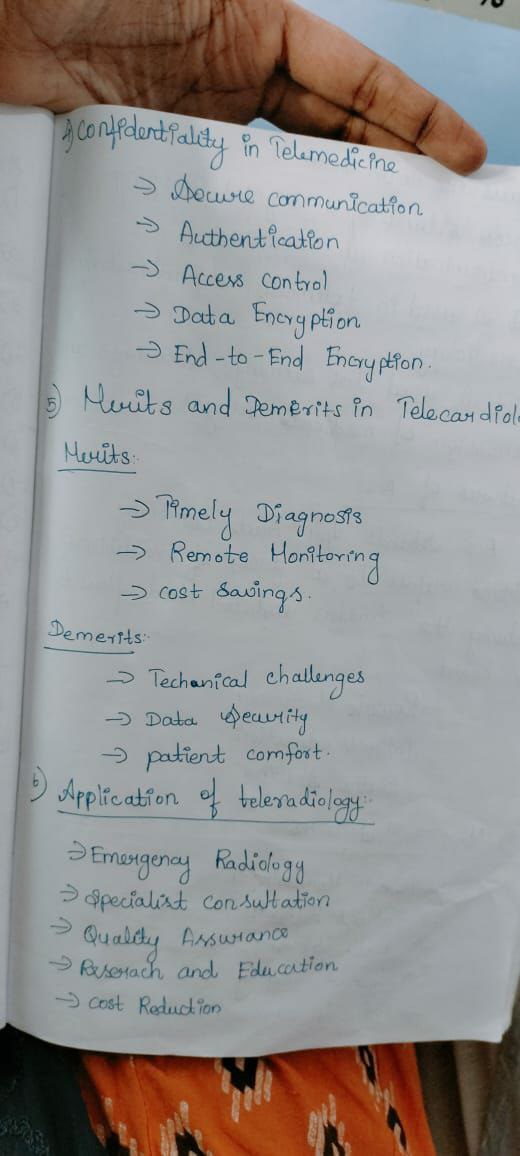 4) Confidentiality in Telemedicine
→ Secure communication
→ Authentication
→ Access control
→ Data Encryption
→ End-to-End Encryption.
5) Merits and Demerits in Telecardiolo
Merits:-
→ Timely Diagnosis
→ Remote Monitoring
→ cost savings.
Demerits:-
→ Techanical challenges
→ Data Security
→ patient comfort.
6) Application of teleradiology:-
→ Emergency Radiology
→ specialist consultation
→ Quality Assurance
→ Reserach and Education
→ cost Reduction